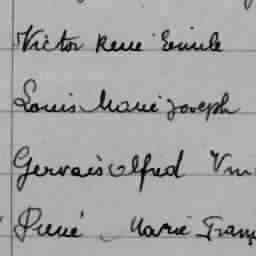 Victor René Emile
Louis Marie Joseph
Gervais Alfred
René Marie Franç